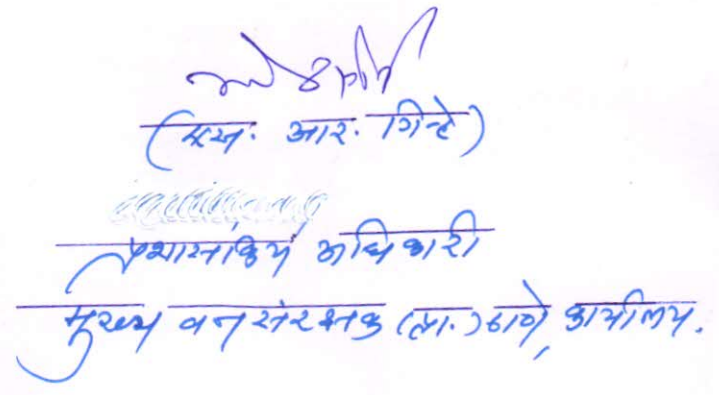 (एस. आर. गिन्हे)
प्रशासकिय अधिकारी
मुख्य वनसंरक्षक (प्रा.) ठाणे, कार्यालय.